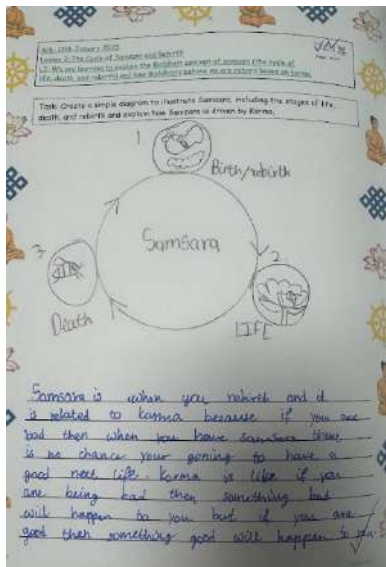 Lesson 2: The Cycle of Samsara and Rebirth
LI: We are learning to explain the Buddhist concept of samsara (the cycle of
life, death, and rebirth) and how Buddhists believe we are reborn based on karma.
Task: Create a simple diagram to illustrate Samsara, including the stages of life,
death, and rebirth and explain how Samsara is driven by Karma.
1
Birth/rebirth
Samsara
3
2
Death
LIFE
Samsara is when you rebirth and it
is related to karma because if you are
bad then when you have samsara there
is no chance your gonning to have a
good next life. Karma is like if you
are being bad then something bad
will happen to you but if you are
good then something good will happen to you.